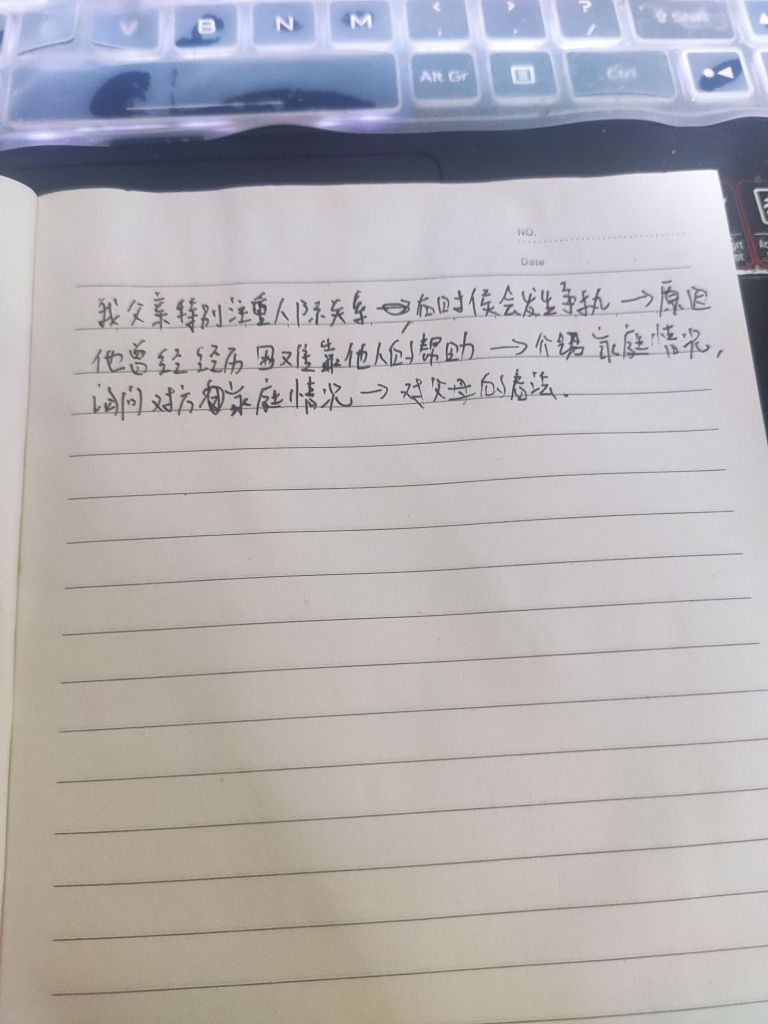 V B N M < , > . ? / ⇧ Shift
Alt Gr Ctrl
NO.
Date
我父亲特别注重人际关系 有时侯会发生争执 → 原因
他曾经经历困难靠他人的帮助 → 介绍家庭情况,
询问对方家庭情况 → 对父母的看法.